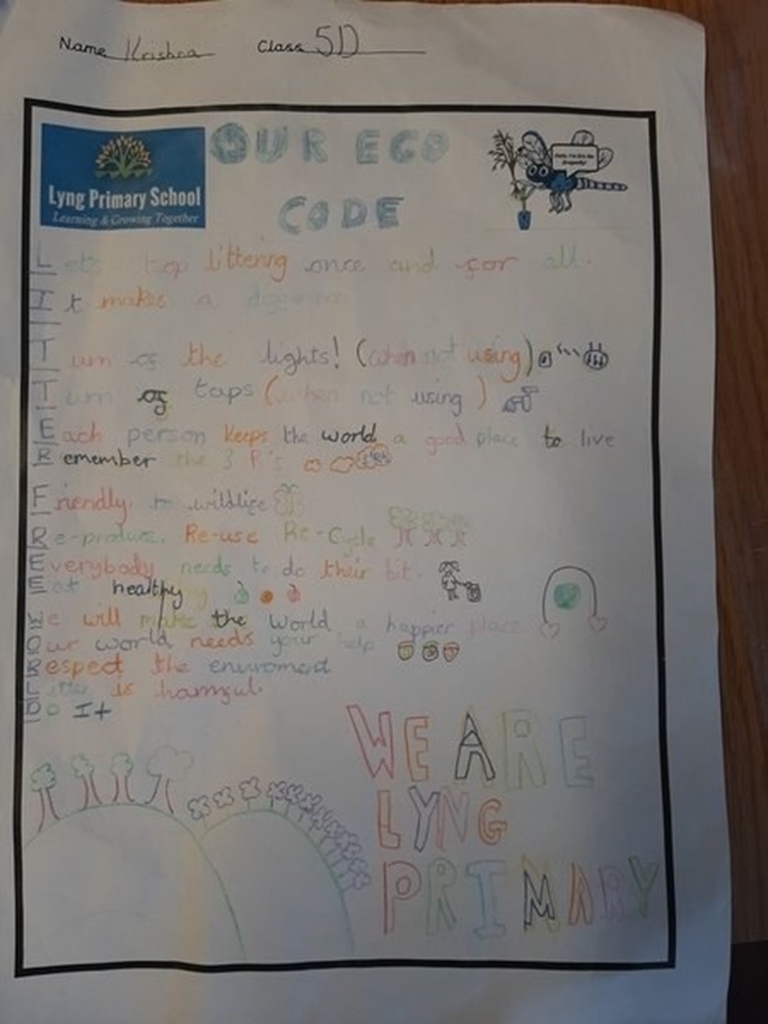 Name Krishna Class 5D
Lyng Primary School
Learning & Growing Together
OUR ECO
CODE
Lets stop littering once and for all.
It makes a
Turn of the lights! (when not using)
Turn of taps (when not using)
Each person keeps the world a good place to live
Remember the 3 R's
Friendly to wildlife
Re-produce. Re-use Re-Cycle
Everybody needs to do their bit.
Eat healthy
We will make the World a happier place
Our world needs your help
Respect the enviroment
Litter is harmful.
Do It
WE ARE
LYNG
PRIMARY